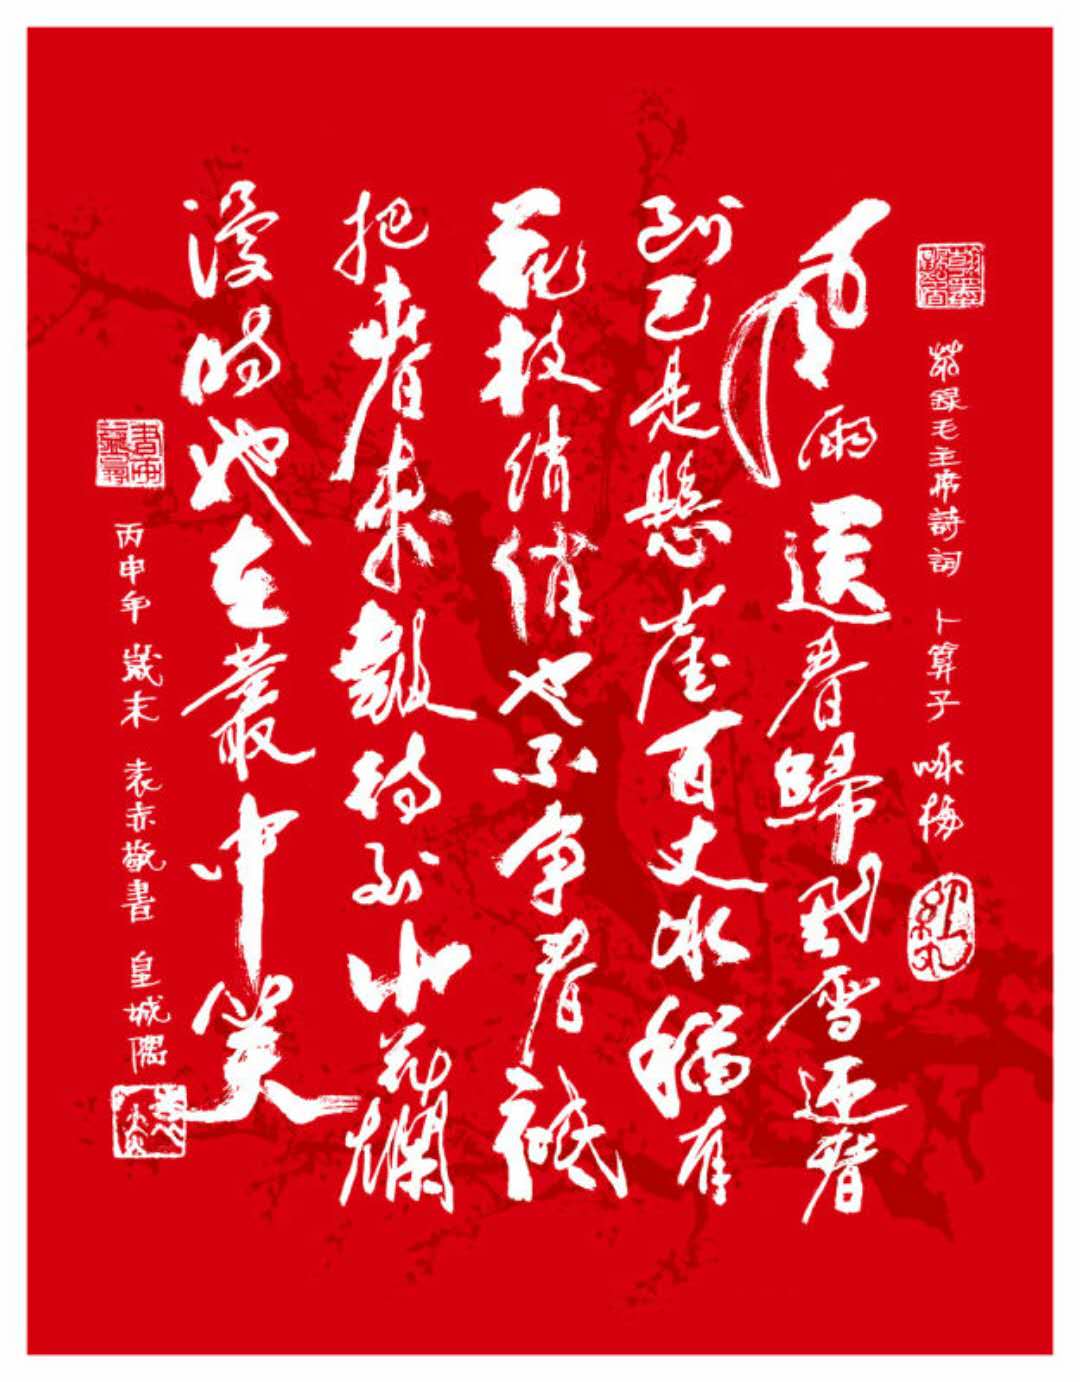 錄毛主席詩詞 卜算子 咏梅
風雨送春歸飛雪迎春
到已是懸崖百丈冰猶有
花枝俏俏也不争春祗
把春来報待到山花爛
漫時她在叢中笑
丙申年 歲末 袁赤敬書 皇城隅